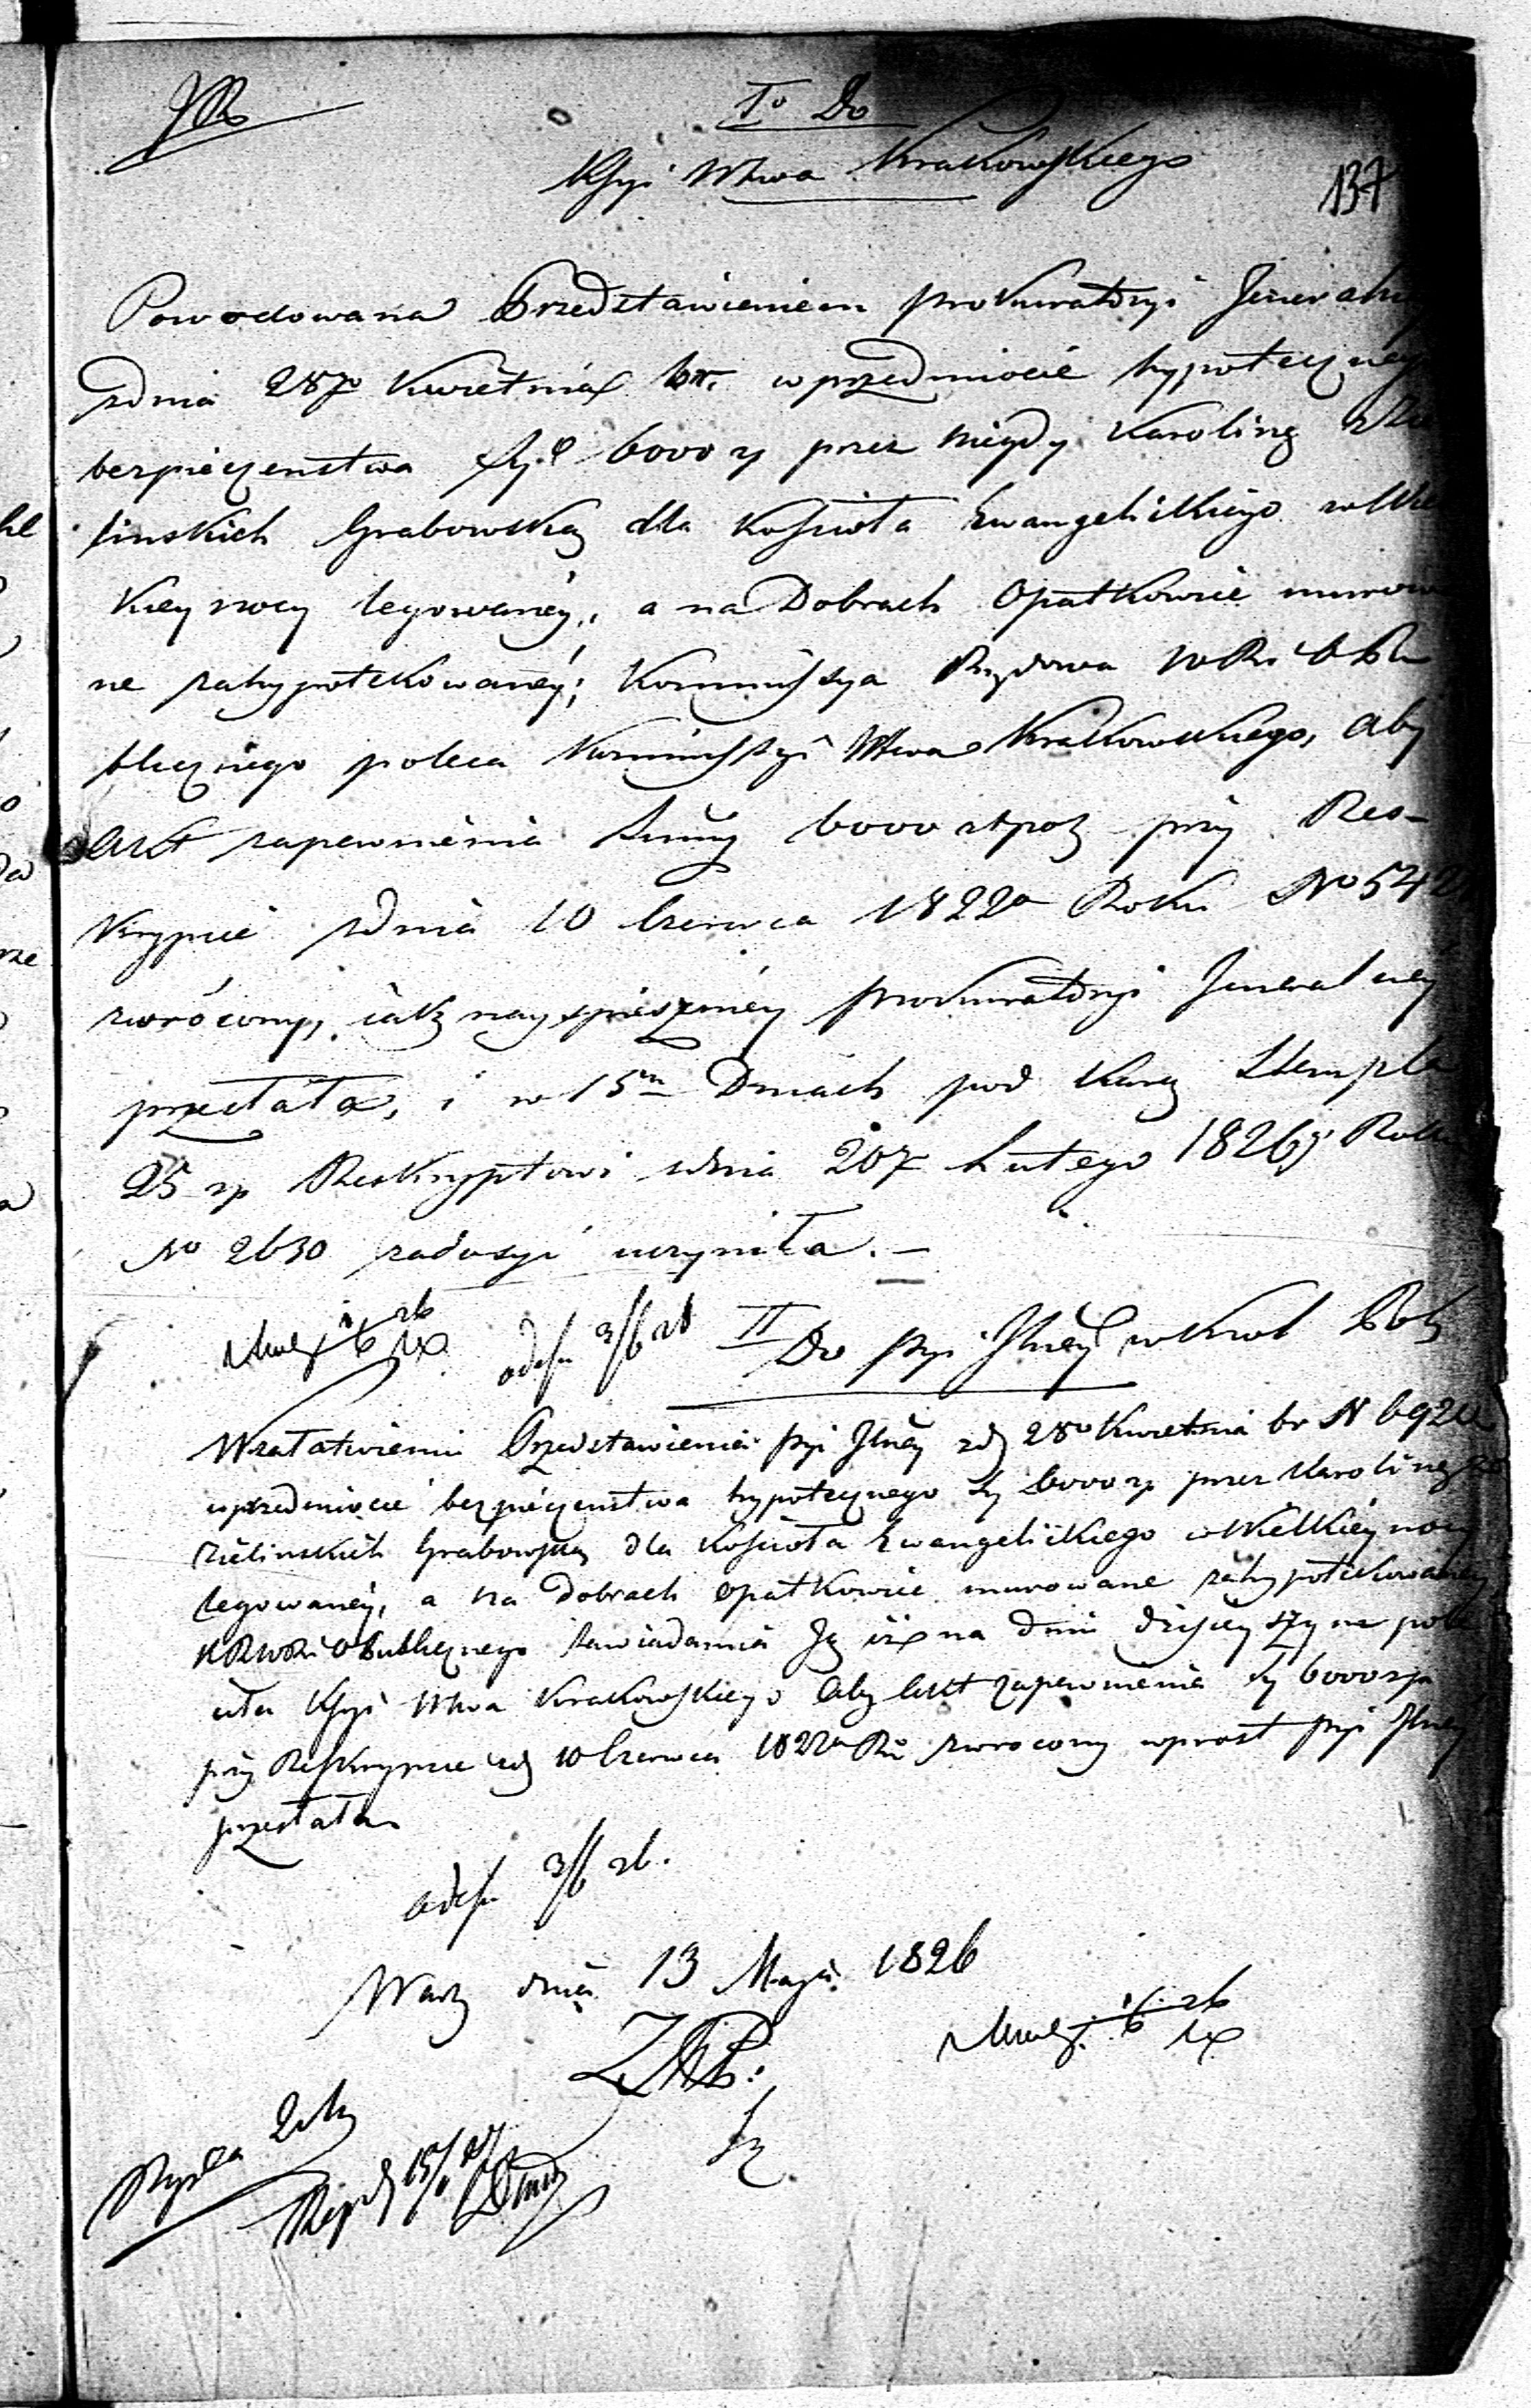 Iº Do
Kssyi Wtwa Krakowskiego
137
Powodowana Przedstawieniem prokuratoryi Jeneralney
zdnia 28go Kwietnia br. w przedmiocie hypotecznego
bezpieczeństwa 6000 zł przez niegdy Karolinę z Zie
linskich Grabowską dla Kościoła Ewangelickiego w Wiel
kiey nocy legowaney, a na Dobrach Opatkowice murowa
ne zahypotekowaney; Kommissya Rządowa W R i O Pu
blicznego poleca Kommissyi Wtwa Krakowskiego, aby
akt zapewnienia Summy 6000 złpol przy Res-
krypcie zdnia 10 Czerwca 1822º Roku Nº 542
zwrócony, iak nayspieszniey prokuratoryi Jeneralney
przesłała, i w 15tu Dniach pod karą Stempla
25 zł Reskryptowi zdnia 20go Lutego 1826 Roku
Nº 2630 zadosyć uczyniła.—
odesł 3/6 26 II Do pryi Jlney w Król Pols
W załatwieniu Przedstawienia pryi Jlney zd 28º Kwietnia br N 6920
w przedmiocie bezpieczeństwa hypotecznego Sy 6000 zł przez Karolinę z
Zielinskich Grabowską dla Kościoła Ewangelickiego w Wielkiey nocy
legowaney, a na dobrach Opatkowice murowane zahypotekowaney
KRWR i O Publicznego zawiadamia Ją iż na dniu dzisieyszym pole
ciła Kssyi Wtwa Krakowskiego aby akt zapewnienia Sy 6000 zł
przy Reskrypcie zd 10 Czerwca 1822º Ru zwrocony wprost pryi Jlney
przesłała
odesł 3/6 26.
Warsz dnia 13 Maja 1826